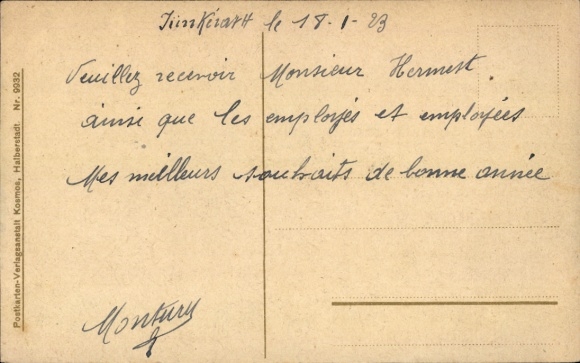 Jünkérath le 18-1-23
Veuillez recevoir Monsieur Hermest.
ainsi que les employés et employées
Mes meilleurs souhaits de bonne année
Postkarten-Verlagsanstalt Kosmos, Halberstadt. Nr. 9932